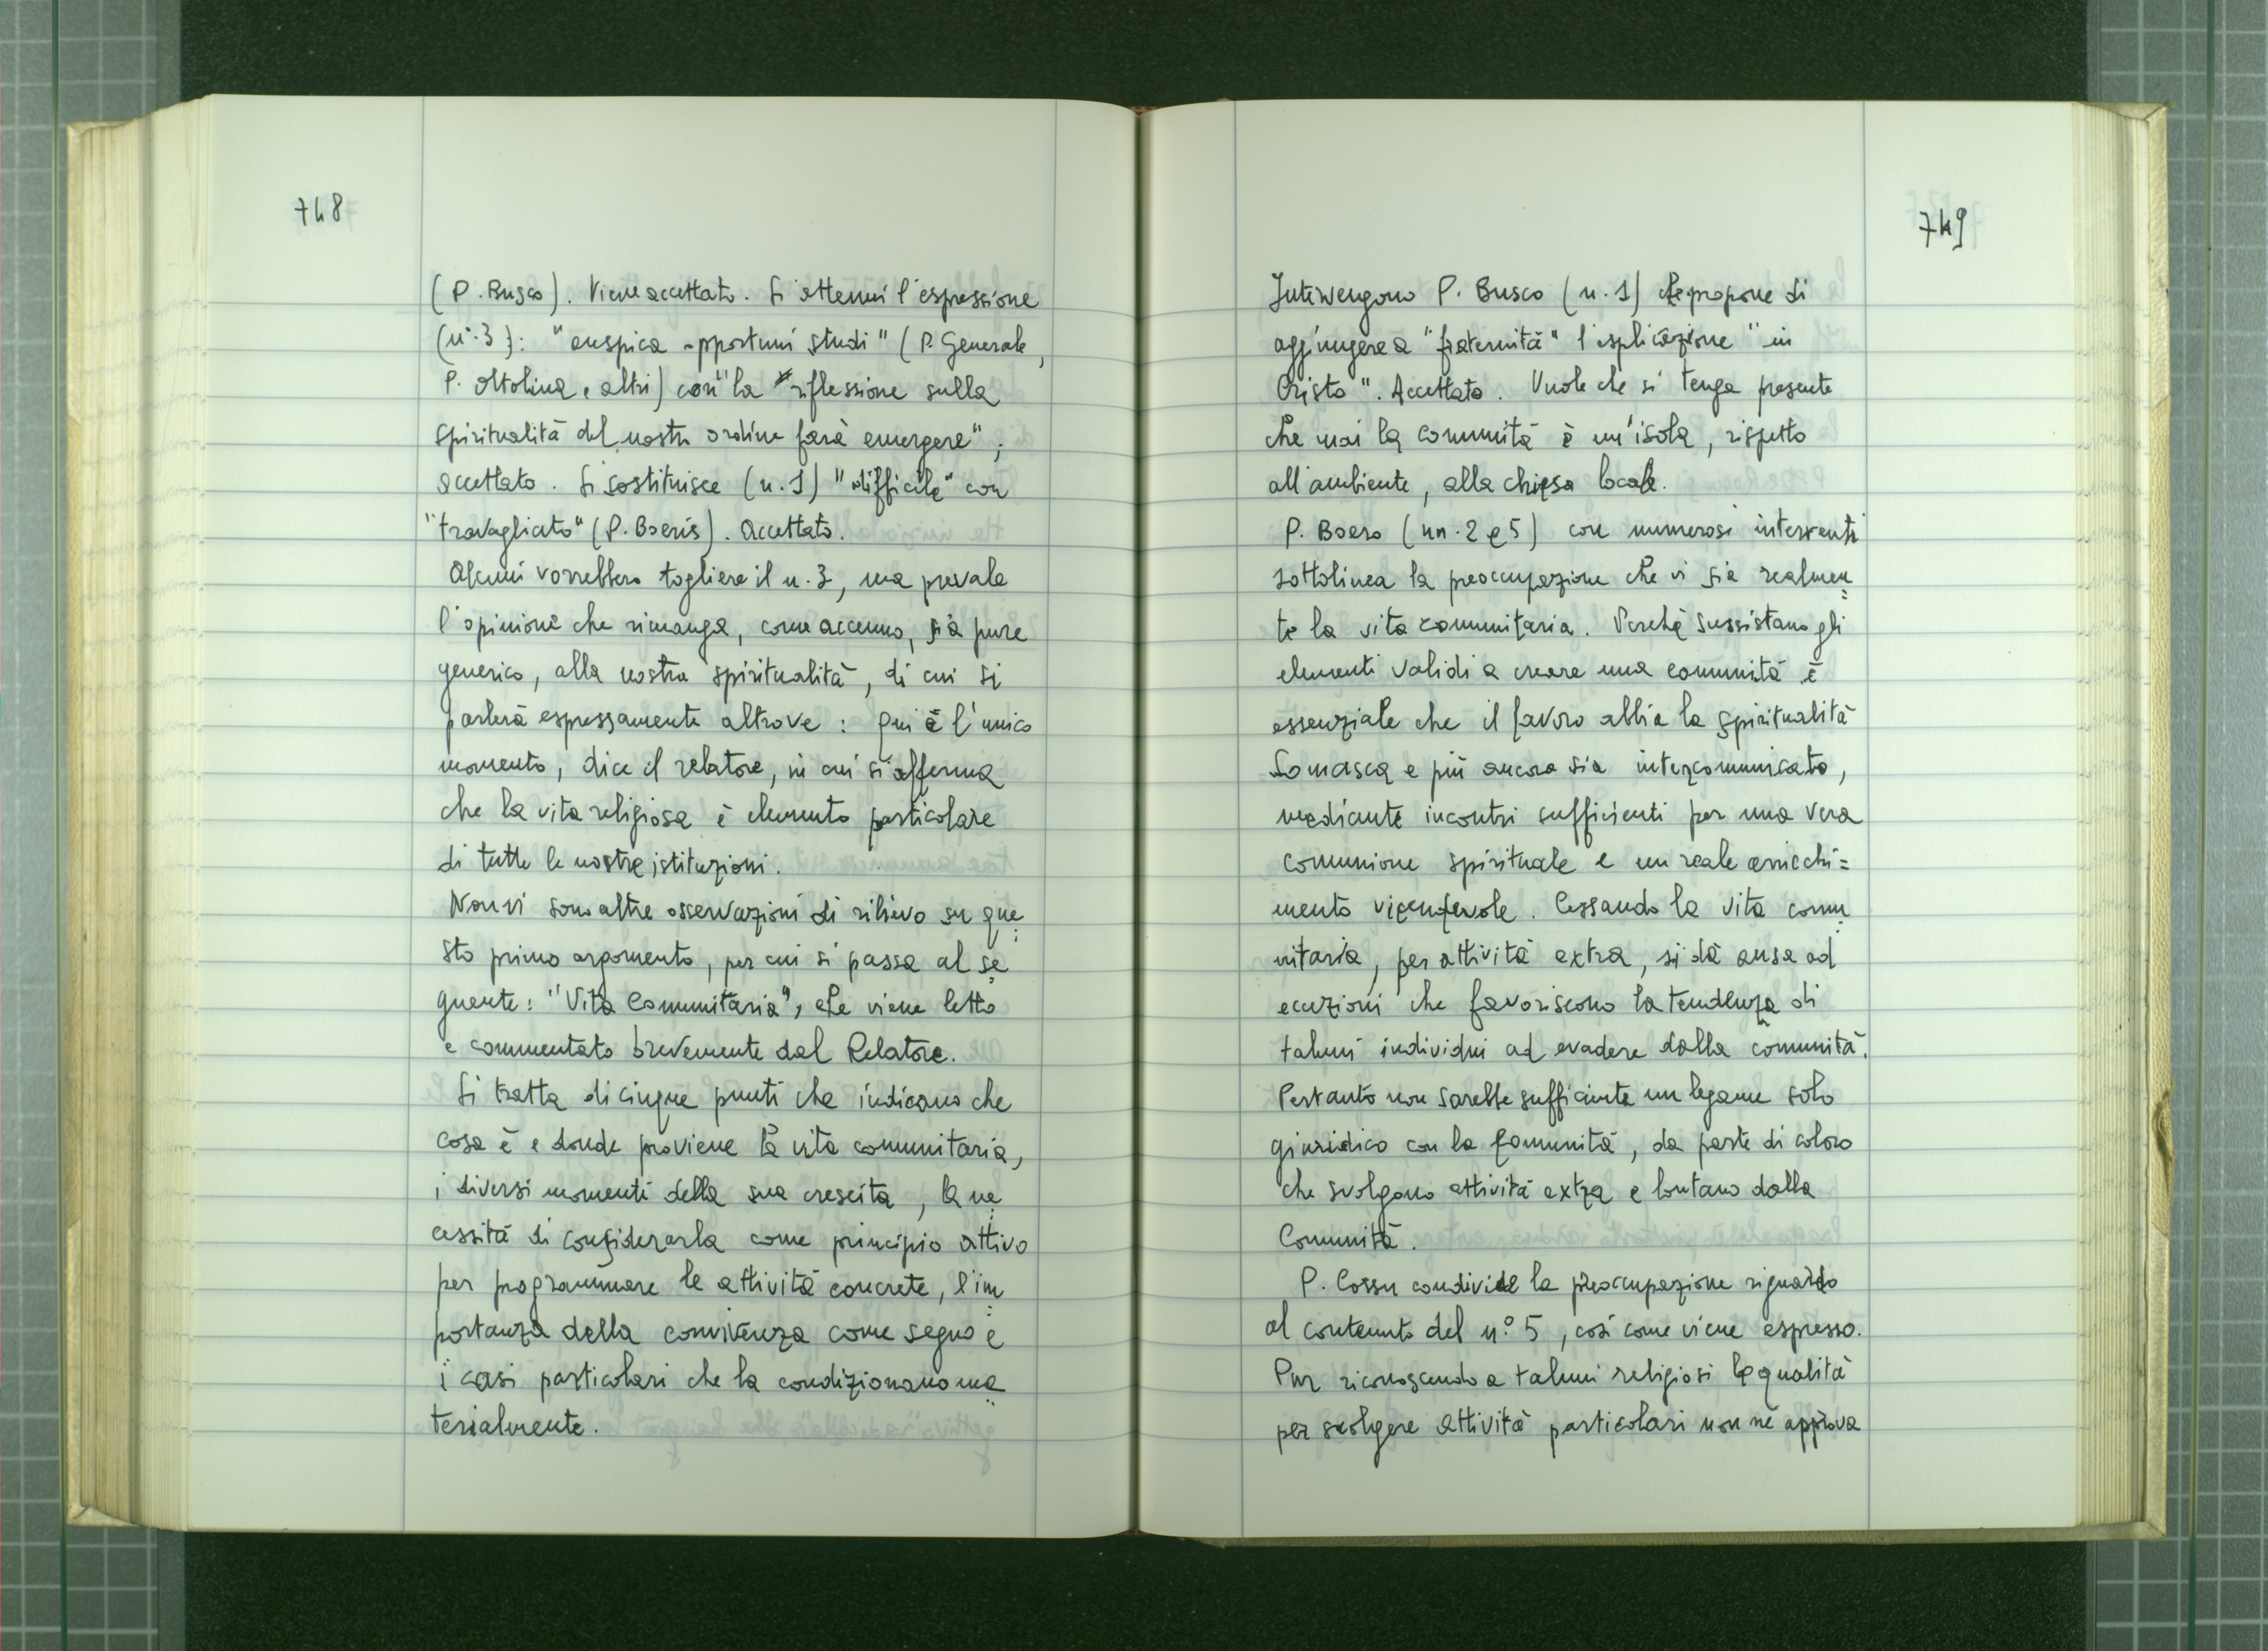 748
(P. Busco). Viene accettato. Si attenui l'espressione
(n. 3): "auspica opportuni studi" (P. Generale,
P. Ottolina e altri) con "la riflessione sulla
spiritualità del nostro ordine farà emergere";
accettato. Si sostituisce (n. 1) "difficile" con
"travagliato" (P. Boeris). Accettato.
Alcuni vorrebbero togliere il n. 3, ma prevale
l'opinione che rimanga, come accenno, sia pure
generico, alla nostra spiritualità, di cui si
parlerà espressamente altrove: qui è l'unico
momento, dice il relatore, in cui si afferma
che la vita religiosa è elemento particolare
di tutte le nostre istituzioni.
Non vi sono altre osservazioni di rilievo su que=
sto primo argomento, per cui si passa al se=
guente: "Vita Comunitaria", che viene letto
e commentato brevemente dal Relatore.
Si tratta di cinque punti che indicano che
cosa è e donde proviene la vita comunitaria,
i diversi momenti della sua crescita, la ne=
cessità di considerarla come principio attivo
per programmare le attività concrete, l'im=
portanza della convivenza come segno e
i casi particolari che la condizionano ma=
terialmente.
749
Intervengono P. Busco (n. 1) che propone di
aggiungere a "fraternità" l'esplicazione "in
Cristo". Accettato. Vuole che si tenga presente
che mai la comunità è un'isola, rispetto
all'ambiente, alla chiesa locale.
P. Boero (nn. 2 e 5) con numerosi interventi
sottolinea la preoccupazione che vi sia realmen=
te la vita comunitaria. Perché sussistano gli
elementi validi a creare una comunità è
essenziale che il lavoro abbia la spiritualità
Somasca e più ancora sia intercomunicato,
mediante incontri sufficienti per una vera
comunione spirituale e un reale arricchi=
mento vicendevole. Cessando la vita comu=
nitaria, per attività extra, si dà ansa ad
eccezioni che favoriscono la tendenza di
taluni individui ad evadere dalla comunità.
Pertanto non sarebbe sufficiente un legame solo
giuridico con la Comunità, da parte di coloro
che svolgono attività extra e lontano dalla
Comunità.
P. Cossu condivide la preoccupazione riguardo
al contenuto del n° 5, così come viene espresso.
Pur riconoscendo a taluni religiosi le qualità
per svolgere attività particolari non ne approva